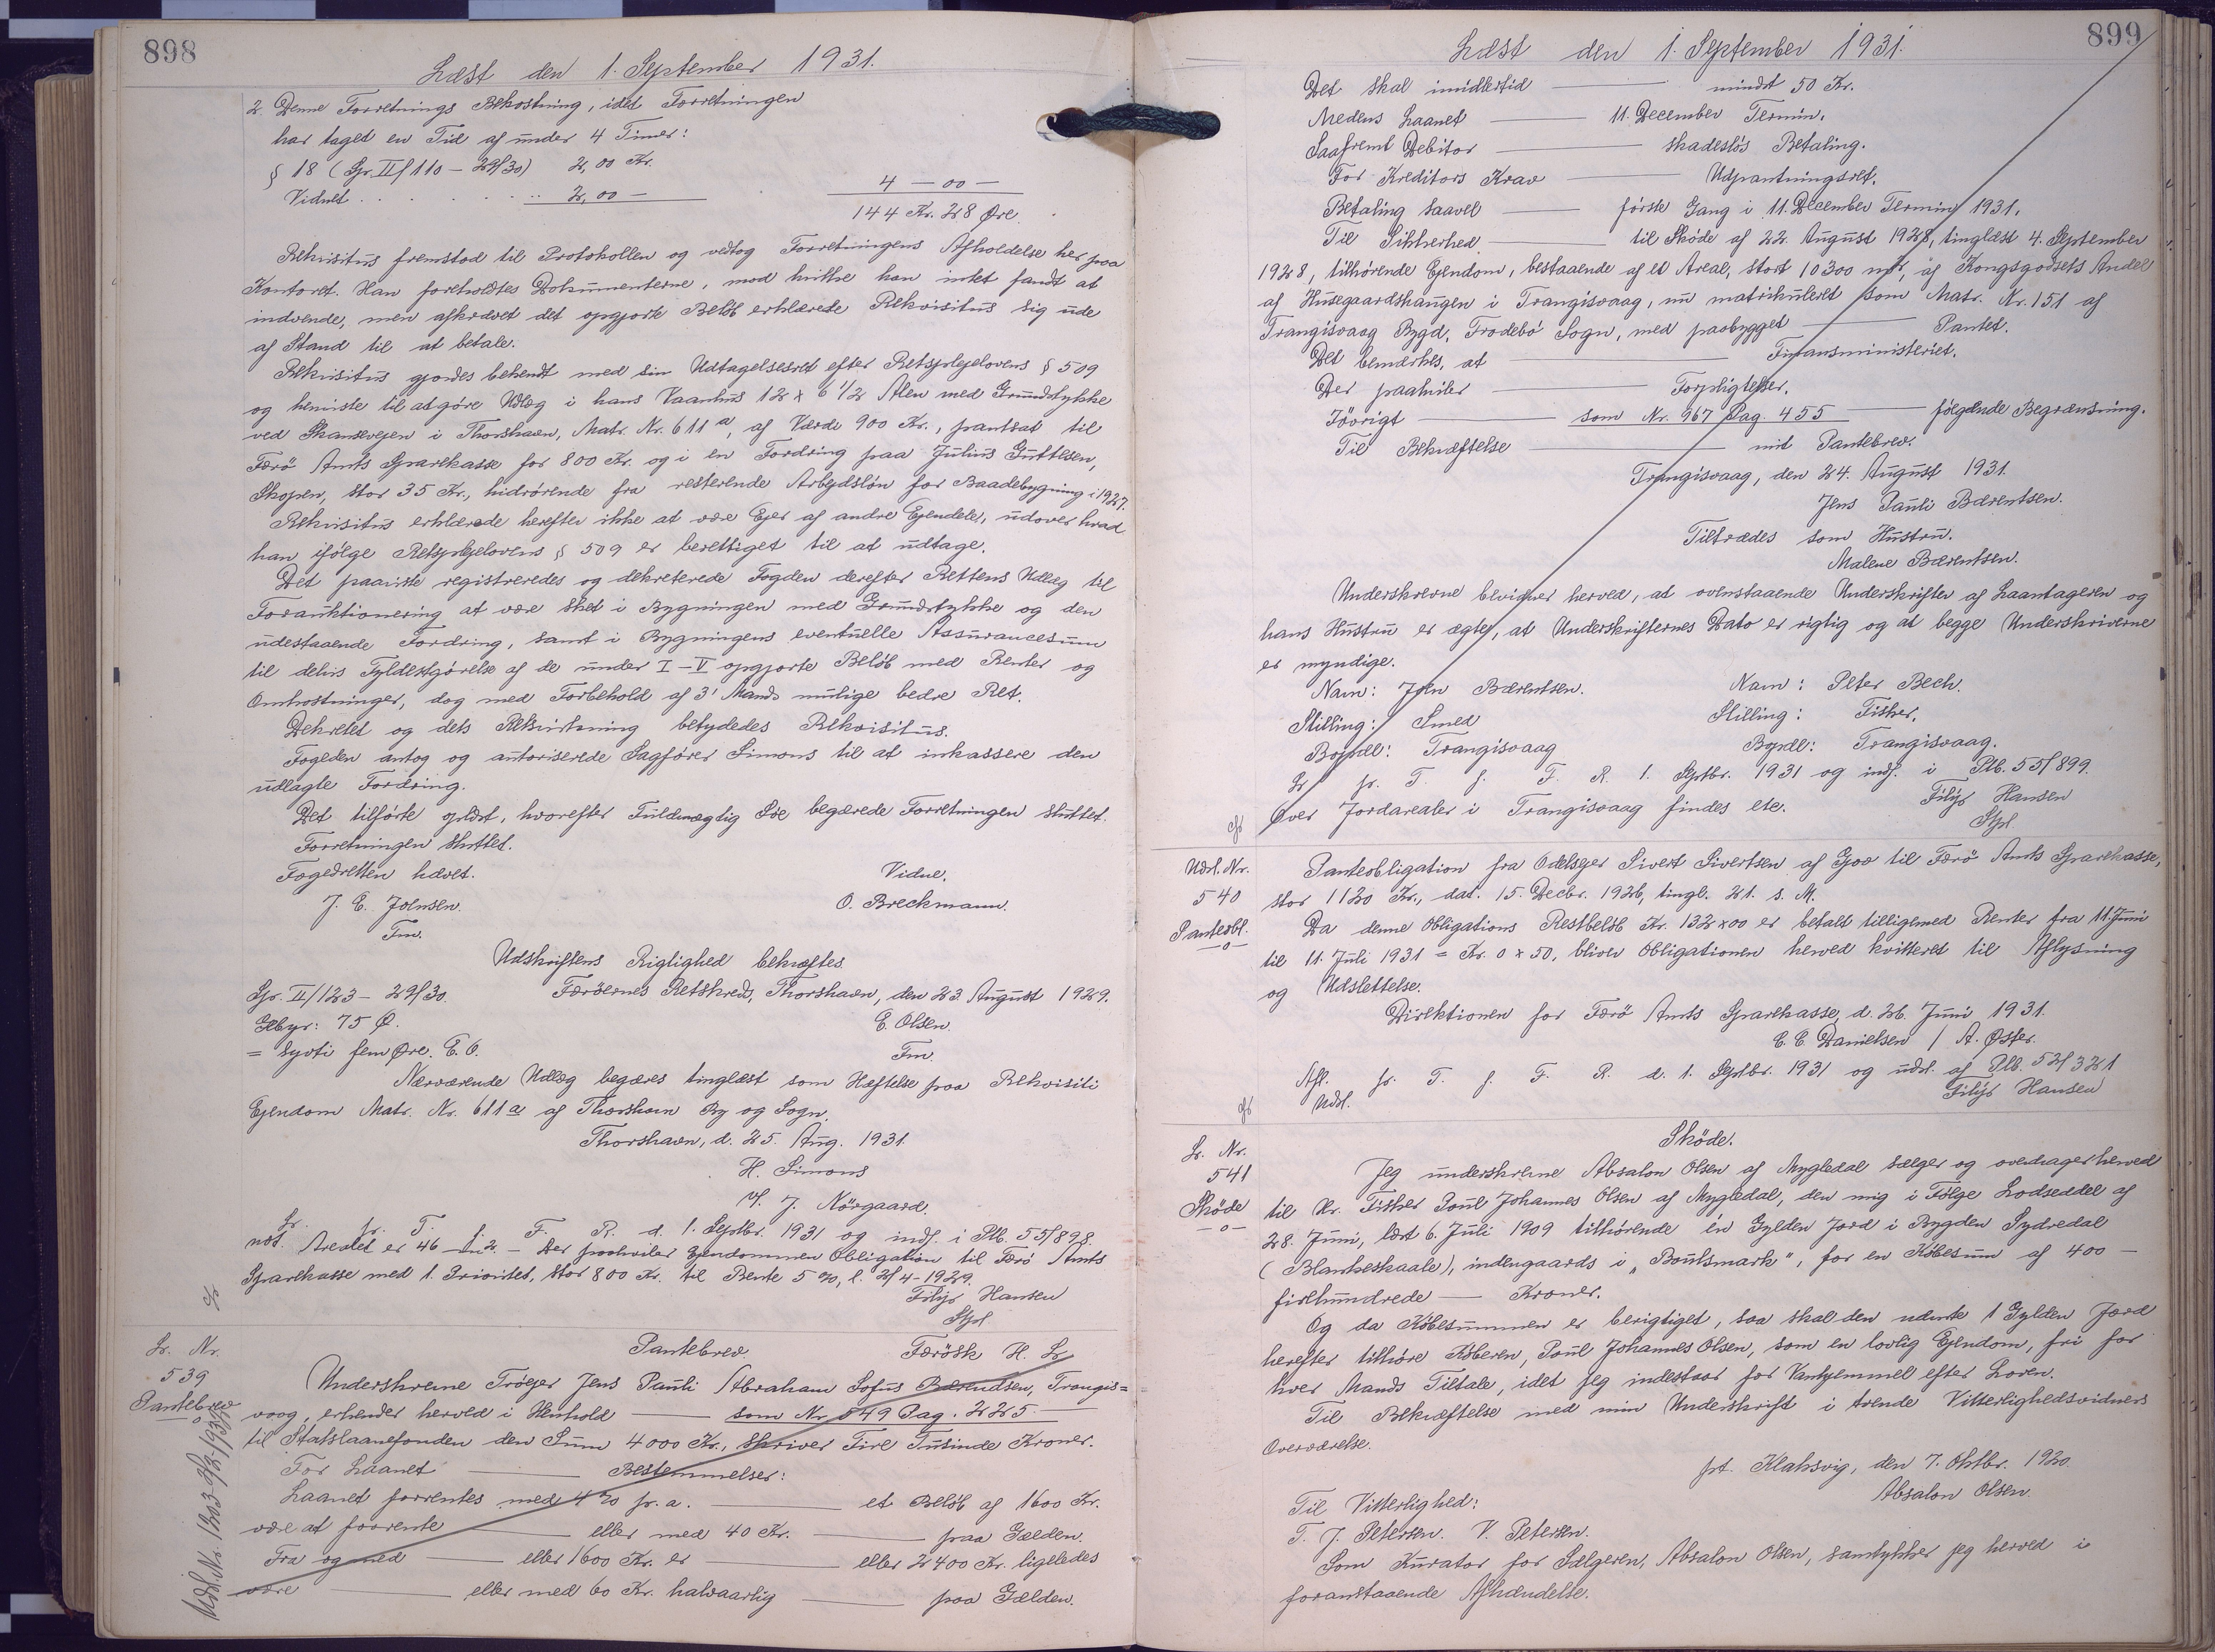 898
Læst den 1. September 1931.
2. Denne Forretnings Bekostning, idet Forretningen
har taget en Tid af under 4 Timer:
§ 18 (Gr. II/110 - 29/30) 2,00 Kr.
Vidnet . . . . . . 2,00 —
4 — 00 —
144 Kr. 28 Øre.
Rekvisitus fremstod til Protokollen og vedtog Forretningens Afholdelse her paa
Kontoret. Han foreholdtes Dokumenterne, mod hvilke han intet fandt at
indvende, men afkrævet det opgjorte Beløb erklærede Rekvisitus sig ude
af Stand til at betale.
Rekvisitus gjordes bekendt med sin Udtagelsesret efter Retsplejelovens § 509
og henviste til at gøre Udlæg i hans Vaanhus 12 x 6 1/2 Alen med Grundstykke
ved Skansevejen i Thorshavn, Matr. Nr. 611 a, af Værdi 900 Kr., pantsat til
Færö Amts Sparekasse for 800 Kr. og i en Fordring paa Julius Guttesen,
Skopen, stor 35 Kr., hidrørende fra resterende Arbejdsløn for Baadebygning i 1927.
Rekvisitus erklærede herefter ikke at være Ejer af andre Ejendele, udover hvad
han ifølge Retsplejelovens § 509 er berettiget til at udtage.
Det paaviste registreredes og dekreterede Fogden derefter Rettens Udlæg til
Forauktionering at være sket i Bygningen med Grundstykke og den
udestaaende Fordring, samt i Bygningens eventuelle Assurancesum
til delvis Fyldestgørelse af de under I - V opgjorte Beløb med Renter og
Omkostninger, dog med Forbehold af 3' Mands mulige bedre Ret.
Dekretet og dets Retsvirkning betydedes Rekvisitus.
Fogeden antog og autoriserede Sagfører Simons til at inkassere den
udlagte Fordring.
Det tilførte oplæst, hvorefter Fuldmægtig Søe begærede Forretningen sluttet.
Forretningen sluttet.
Fogedretten hævet.
Vidne.
J. E. Joensen.
O. Breckmann.
Fm.
Udskriftens Rigtighed bekræftes.
Gr. II/123 - 29/30.
Færøernes Retskreds, Thorshavn, den 23. August 1929.
Gebyr: 75 Ø.
E. Olsen.
= Syvti fem Øre. E. O.
Fm.
Nærværende Udlæg begæres tinglæst som Hæftelse paa Rekvisiti
Ejendom Matr. Nr. 611 a af Thorshavn By og Sogn.
Thorshavn, d. 25. Aug. 1931.
H. Simons
v/. J. Nörgaard.
Lr. fr. T. f. F. R. d. 1. Septbr. 1931 og indf. i Ptb. 55/898.
not. Arealet er 46 — m2. — Der paahviler Ejendommen Obligation til Færö Amts
Sparekasse med 1. Prioritet, stor 800 Kr. til Rente 5 %, l. 2/4 - 1929.
Filip Hansen
Lr. Nr.
539
Pantebrev
Udsl. Nr. 1203
Pantebrev.
Færøsk H. Lr.
Underskrevne Trøejer Jens Pauli Abraham Sofus Bærendsen, Trangis=
vaag, erkender herved i Henhold — som Nr. 549 Pag. 225 —
til Statslaanefonden den Sum 4000 Kr., skriver Fire Tusinde Kroner.
For Laanet — Bestemmelser:
Laanet forrentes med 4 % p. a. — et Beløb af 1600 Kr.
være at forrente — eller med 40 Kr. — paa Gælden.
Fra og med — eller 1600 Kr. er — eller 2400 Kr. ligeledes
være — eller med 60 Kr. halvaarlig — paa Gælden.
899
Læst den 1. September 1931.
Det skal imidlertid — mindst 50 Kr.
Medens Laanet — 11. December Termin.
Saafremt Debitor — skadesløs Betaling.
For Kreditors Krav — Udpantningsret.
Betaling saavel — første Gang i 11. December Termin 1931.
Til Sikkerhed — til Skøde af 22. August 1928, tinglæst 4. September
1928, tilhørende Ejendom, bestaaende af et Areal, stort 10300 m², af Kongsgodsets Andel
af Husegaardshaugen i Trangisvaag, nu matrikuleret som Matr. Nr. 151 af
Trangisvaag Bygd, Frodebö Sogn, med paabygget — Pantet.
Det bemærkes, at — Finansministeriet.
Der paahviler — Forpligtelser.
Iøvrigt — som Nr. 967 Pag. 455 — følgende Begrænsning.
Til Bekræftelse — mit Pantebrev.
Trangisvaag, den 24. August 1931.
Jens Pauli Bærentsen.
Tiltrædes som Hustru.
Malene Bærentsen.
Underskrevne bevidner herved, at ovenstaaende Underskrifter af Laantageren og
hans Hustru er ægte, at Underskrifternes Dato er rigtig og at begge Underskriverne
er myndige.
Navn: Joen Bærentsen. Navn: Peter Bech.
Stilling: Smed Stilling: Fisker.
Bopæl: Trangisvaag Bopæl: Trangisvaag.
Lr. fr. T. f. F. R. 1. Septbr. 1931 og indf. i Ptb. 55/899.
Over Jordarealer i Trangisvaag findes etc.
Filip Hansen
Udsl. Nr.
540
Panteobl.
—o—
Panteobligation fra Odelsejer Sivert Sivertsen af Gjov til Færö Amts Sparekasse,
stor 1120 Kr., dat. 15. Decbr. 1926, tingl. 21. s. M.
Da denne Obligations Restbeløb Kr. 132 x 00 er betalt tilligemed Renter fra 11. Juni
til 11. Juli 1931 = Kr. 0 x 50, bliver Obligationen herved kvitteret til Aflysning
og Udslettelse.
Direktionen for Færö Amts Sparekasse, d. 26. Juni 1931.
C. C. Danielsen / A. Øster.
Afl. fr. T. f. F. R. d. 1. Septbr. 1931 og udsl. af Ptb. 52/321
Udsl.
Filip Hansen
Lr. Nr.
541
Skøde
—o—
Skøde.
Jeg underskrevne Absalon Olsen af Mygledal sælger og overdrager herved
til Hr. Fisker Poul Johannes Olsen af Mygledal, den mig i Følge Lodseddel af
28. Juni, læst 6. Juli 1909 tilhørende én Gylden Jord i Bygden Sydredal
(Blankeskaale), indengaards i „Boutsmark", for en Købesum af 400 —
firehundrede — Kroner.
Og da Købesummen er berigtiget, saa skal den nævnte 1 Gylden Jord
herefter tilhøre Køberen, Poul Johannes Olsen, som en lovlig Ejendom, fri for
hver Mands Tiltale, idet jeg indestaar for Vanhjemmel efter Loven.
Til Bekræftelse med min Underskrift i tvende Vitterlighedsvidners
Overværelse.
pt. Klaksvig, den 7. Oktbr. 1920.
Absalon Olsen.
Til Vitterlighed:
T. J. Petersen. V. Petersen.
Som Kurator for Sælgeren, Absalon Olsen, samtykker jeg herved i
foranstaaende Afhændelse.